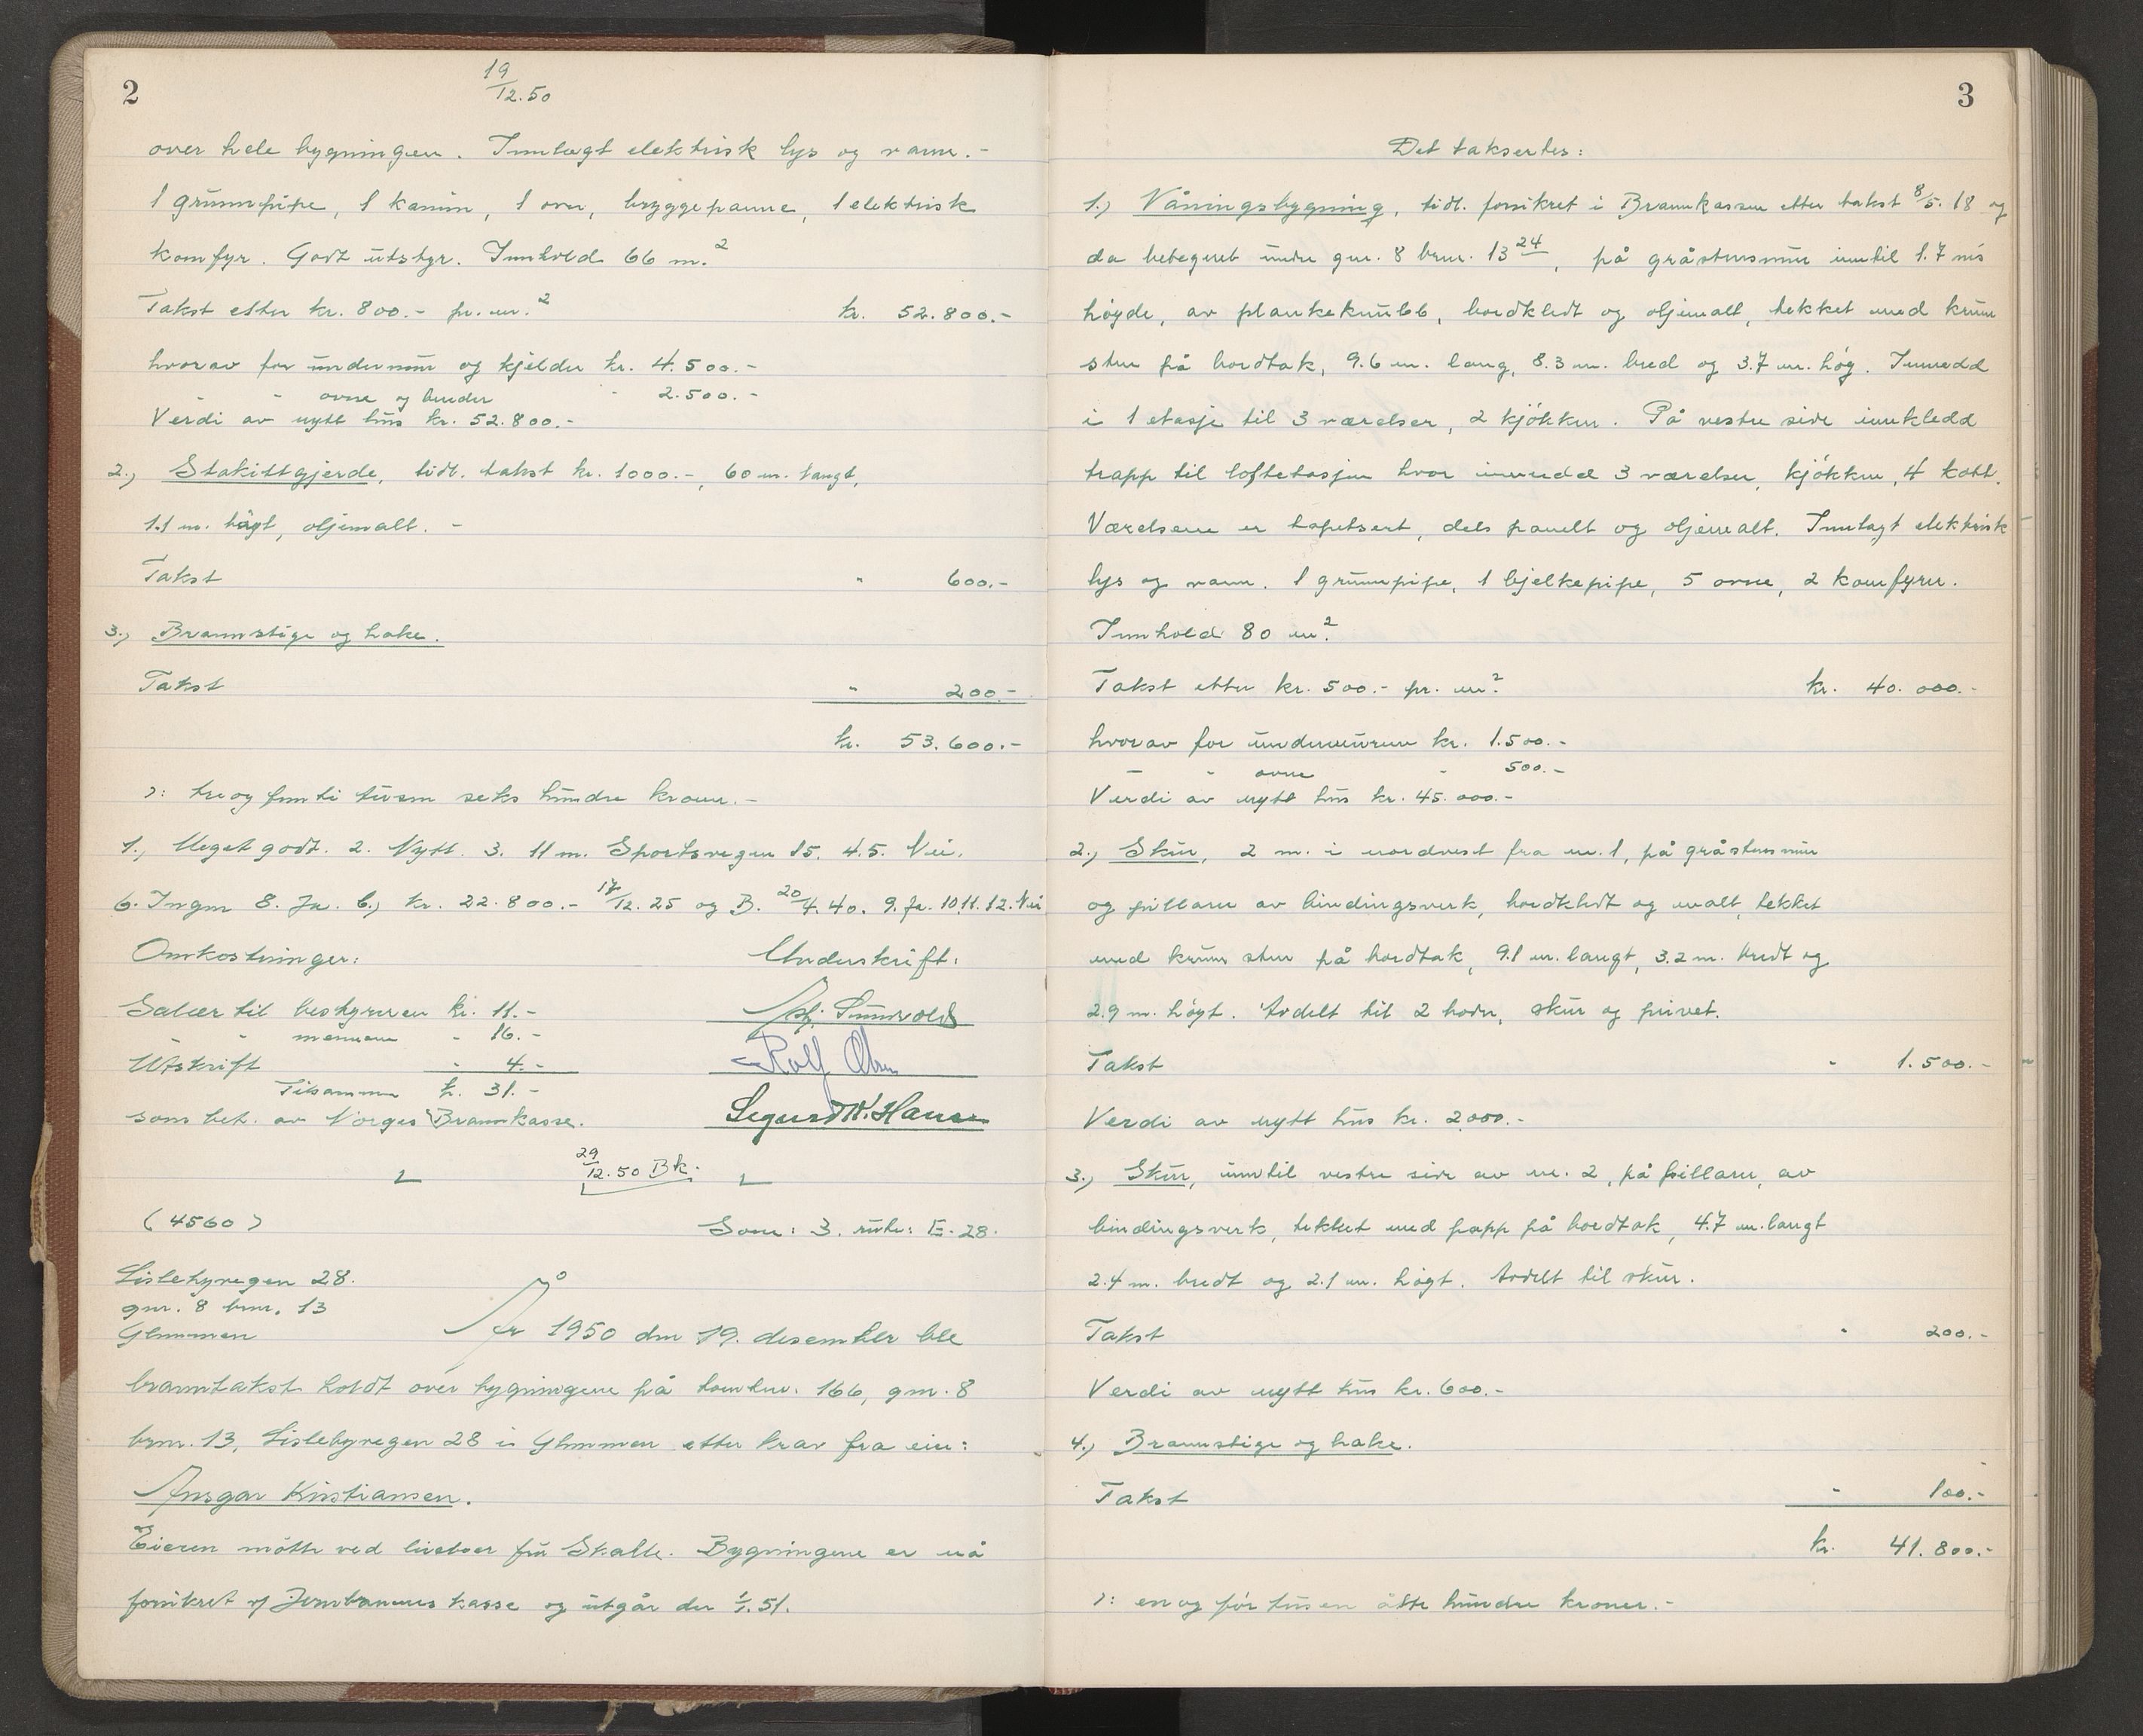 2
19/12.50
over hele bygningen. Innlagt elektrisk lys og vann.-
1 grunnpipe, 1 kamin, 1 ovn, bryggepanne, 1 elektrisk
komfyr. Godt utstyr. Innhold 66 m.²
Takst etter kr. 800.- pr. m.² kr. 52.800.-
hvorav for undermur og kjelder kr. 4.500.-
- - ovne og - 2.500.-
Verdi av nytt hus kr. 52.800.-
2.) Stakittgjerde, tidl. takst kr. 1000.-, 60 m. langt,
1.1 m. høgt, oljemalt. -
Takst " 600.-
3.) Brannstige og hake.
Takst " 200.-
kr. 53.600.-
): tre og femti tusen seks hundre kroner.-
1., Meget godt. 2. Nytt. 3. 11 m. Sportsvegen 15. 4.5. Nei.
6. Ingen 8. Ja. b.) kr. 22.800.- 17/12.25 og B. 20/4.40. 9. Ja. 10.11.12. Nei
Omkostninger: Underskrift:
Salær til bestyreren kr. 11.-
- - mennene - 16.-
Utskrift - 4.- Rolf Olsen
Tilsammen kr. 31.-
som bet. av Norges Brannkasse. Sigurd W. Hansen
29/12.50 Bk.
(4560) Sone: 3. rute: E-28.
Lislebyvegen 28.
gnr. 8 bnr. 13
Glemmen
År 1950 den 19. desember ble
branntakst holdt over bygningene på tomtnr. 166, gnr. 8
bnr. 13, Lislebyvegen 28 i Glemmen etter krav fra eier:
Ansgar Kristiansen.
Eieren møtte ved fru Skalle. Bygningene er nå
forsikret i Jernbanenes kasse og utgår den 1/1.51.
3
Det taksertes:
1.) Våningsbygning, tidl. forsikret i Brannkassen etter takst 8/5.18 og
da betegnet under gnr. 8 bnr. 13 24, på gråstensmur inntil 1.7 ms
høyde, av plankeknubb, bordkledt og oljemalt, tekket med krum
sten på bordtak, 9.6 m. lang, 8.3 m. bred og 3.7 m. høg. Innredd
i 1 etasje til 3 værelser, 2 kjøkken. På vestre side innkledd
trapp til loftetasjen hvor innredd 3 værelser, kjøkken, 4 kott.
Værelsene er tapetsert, dels panelt og oljemalt. Innlagt elektrisk
lys og vann. 1 grunnpipe, 1 bjelkepipe, 5 ovne, 2 komfyrer.
Innhold 80 m².
Takst etter kr. 500.- pr. m². kr. 40.000.-
hvorav for undermuren kr. 1.500.-
- - ovne - 500.-
Verdi av nytt hus kr. 45.000.-
2.) Skur, 2 m. i nordvest fra nr. 1, på gråstensmur
og pillarer av bindingsverk, bordkledt og malt, tekket
med krum sten på bordtak, 9.1 m. langt, 3.2 m. bredt og
2.9 m. høgt. Avdelt til 2 boder, skur og privet.
Takst - 1.500.-
Verdi av nytt hus kr. 2.000.-
3.) Skur, inntil vestre side av nr. 2, på pillarer, av
bindingsverk, tekket med papp på bordtak, 4.7 m. langt
2.4 m. bredt og 2.1 m. høgt. Avdelt til skur.
Takst " 200.-
Verdi av nytt hus kr. 600.-
4.) Brannstige og hake.
Takst - 100.-
kr. 41.800.-
): en og førtusen åtte hundre kroner.-